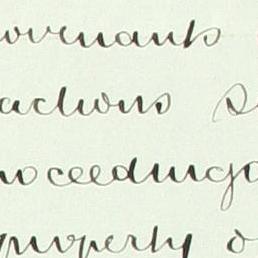 ovenants
actions
oceedings
property